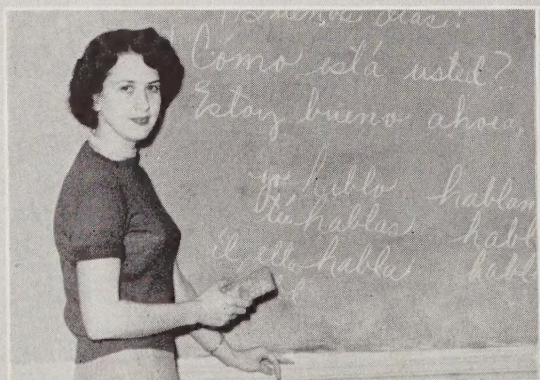 ¡Buenos días!
¿Cómo está usted?
Estoy bueno ahora,
yo hablo hablam
Tú hablas habl
Él, ella habla habl